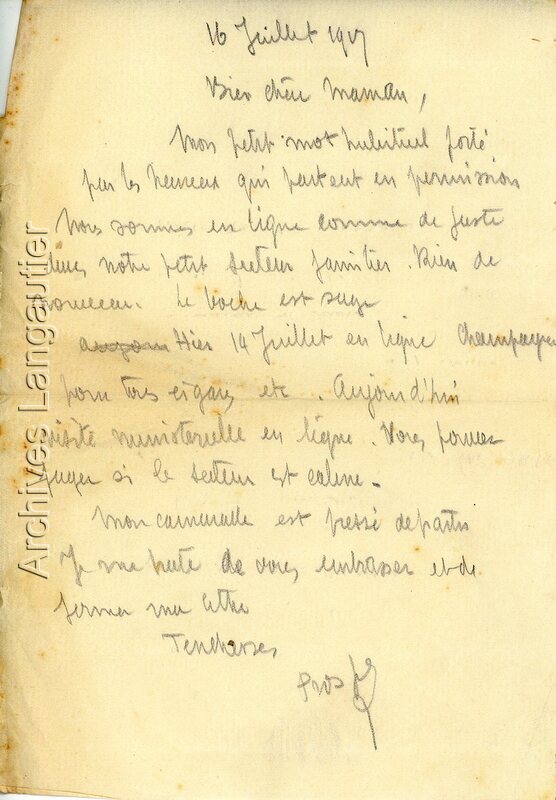 16 Juillet 1917
Bien chère Maman,
Mon petit mot habituel porté
par les heureux qui partent en permission
Nous sommes en ligne comme de juste
dans notre petit secteur familier. Rien de
nouveau. Le boche est sage
Hier 14 Juillet en ligne Champagne
pour tous cigares etc. Aujourd'hui
visite ministerielle en ligne. Vous pouvez
juger si le secteur est calme.
Mon camarade est pressé de partir
Je me hate de vous embrasser et de
fermer ma lettre
Tendresses
Archives Langautier